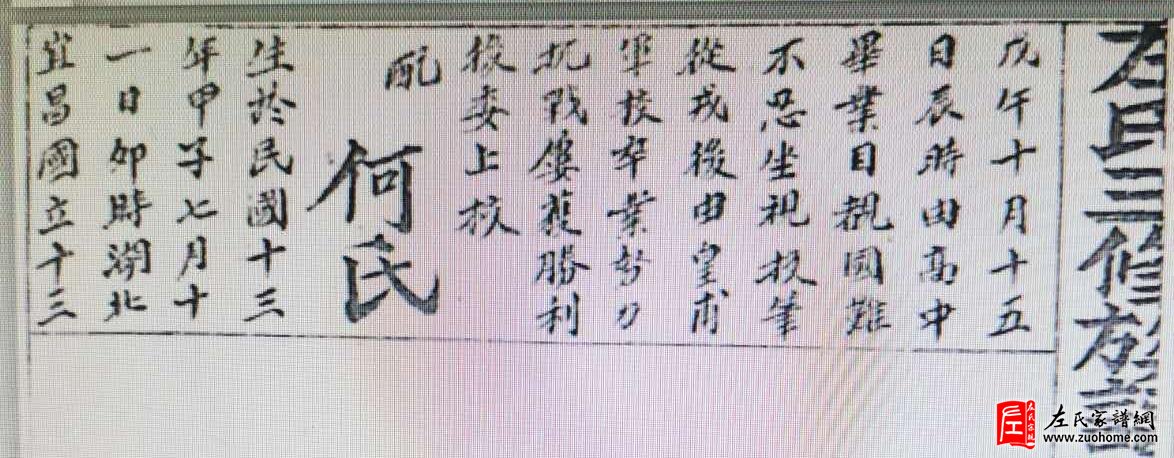 左氏三修族譜
戊午十月十五
日辰時由高中
畢業目覩國難
不忍坐視投筆
從戎後由皇甫
軍校卒業努力
抗戰屢獲勝利
接委上校
配
何氏
生於民國十三
年甲子七月十
一日卯時湖北
宜昌國立十三
左氏宗親
左氏家譜網
www.zuohome.com